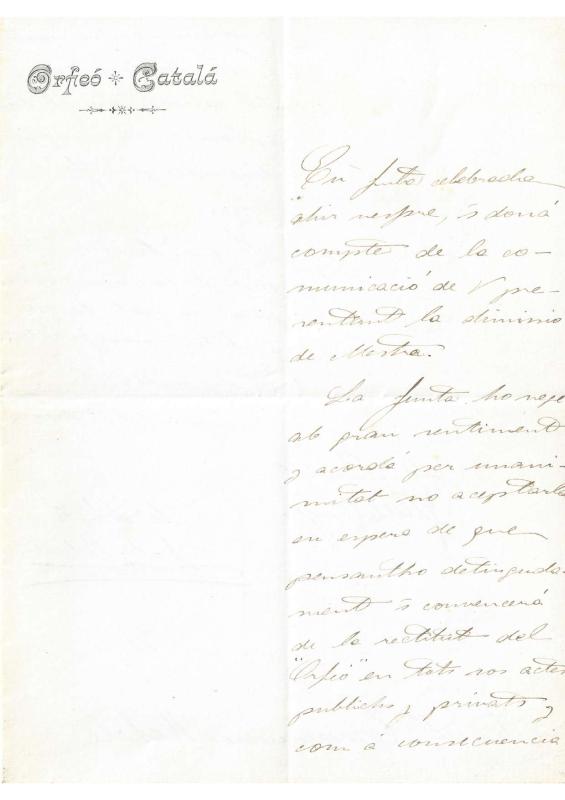 Orfeó Catalá
En Junta celebrada
ahir vespre, 's doná
compte de la co-
municació de V pre-
sentant la dimissió
de Mestra.
La Junta ho rege
ab gran sentiment
y acordá per unani-
mitat no aceptarla
en espera de que
pensantho detinguda-
ment 's convencerá
de la rectitut del
"Orfeó" en tots sos actes
publichs y privats y
com á consecuencia